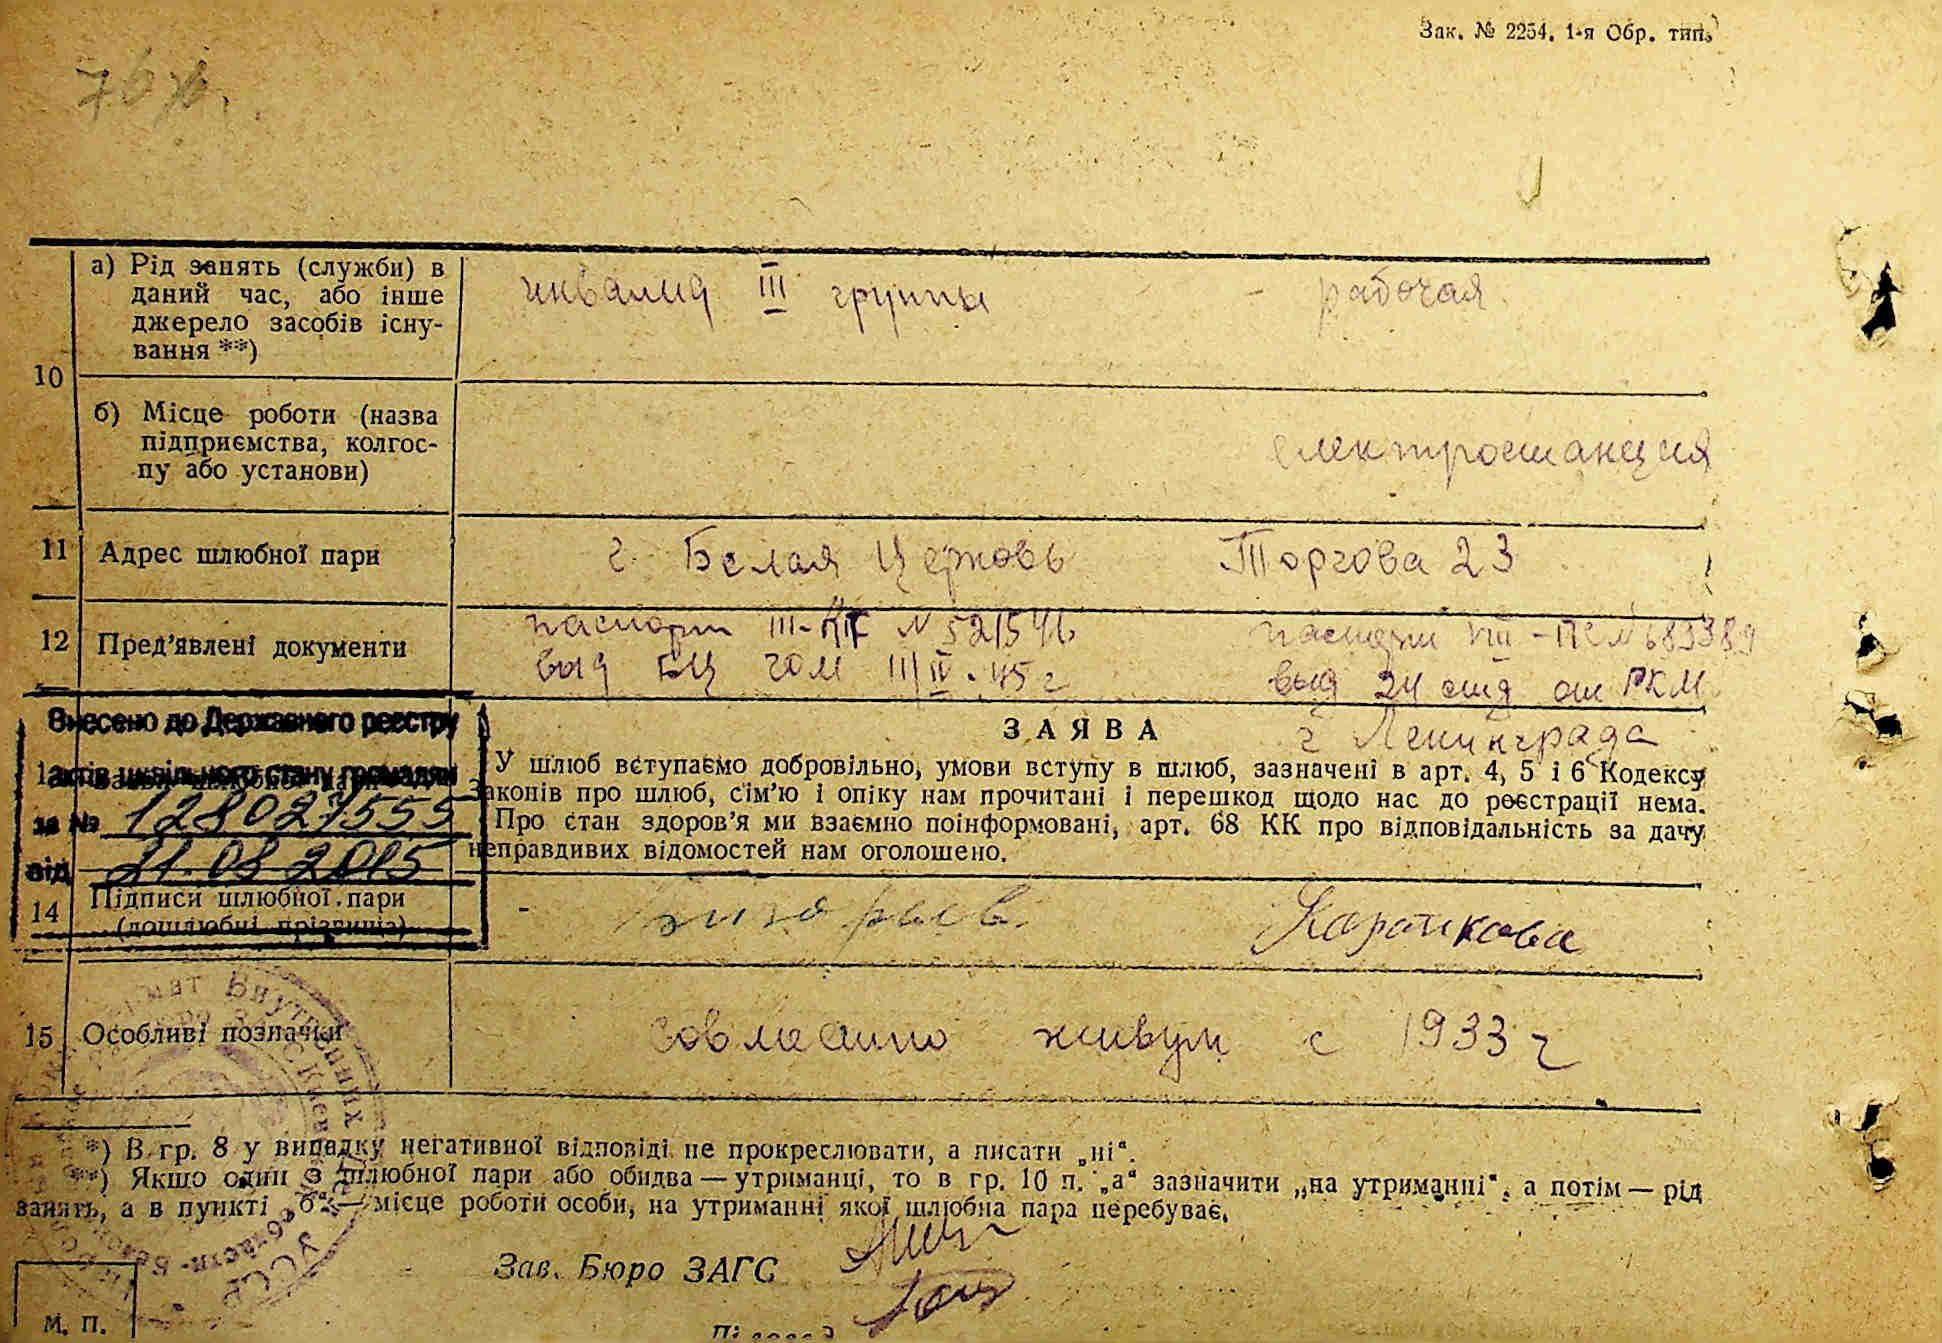 Зак. № 2254. 1-я Обр. тип.
а) Рід занять (служби) в
даний час, або інше
джерело засобів існу-
вання **)
инвалид III группы - рабочая
10
б) Місце роботи (назва
підприємства, колгос-
пу або установи)
електростанция
11 Адрес шлюбної пари г. Белая Церковь Торгова 23
12 Пред'явлені документи
паспорт III- № 521546 паспорт VIII - ПС № 683389
выд БЦ ГОМ III/IV-45 г выд 24 отд РКМ
г Ленинграда
Внесено до Державного реєстру
актів цивільного стану громадян
за № 128027555
від 21.08 2015
ЗАЯВА
У шлюб вступаємо добровільно, умови вступу в шлюб, зазначені в арт. 4, 5 і 6 Кодексу
Законів про шлюб, сім'ю і опіку нам прочитані і перешкод щодо нас до реєстрації нема.
Про стан здоров'я ми взаємно поінформовані, арт. 68 КК про відповідальність за дачу
неправдивих відомостей нам оголошено.
14 Підписи шлюбної пари
(дошлюбні прізвища)
15 Особливі позначки совместно живут с 1933 г
*) В гр. 8 у випадку негативної відповіді не прокреслювати, а писати „ні“.
**) Якщо один з шлюбної пари або обидва — утриманці, то в гр. 10 п. „а“ зазначити „на утриманні“, а потім — рід
занять, а в пункті „б“ — місце роботи особи, на утриманні якої шлюбна пара перебуває.
Зав. Бюро ЗАГС
М. П.